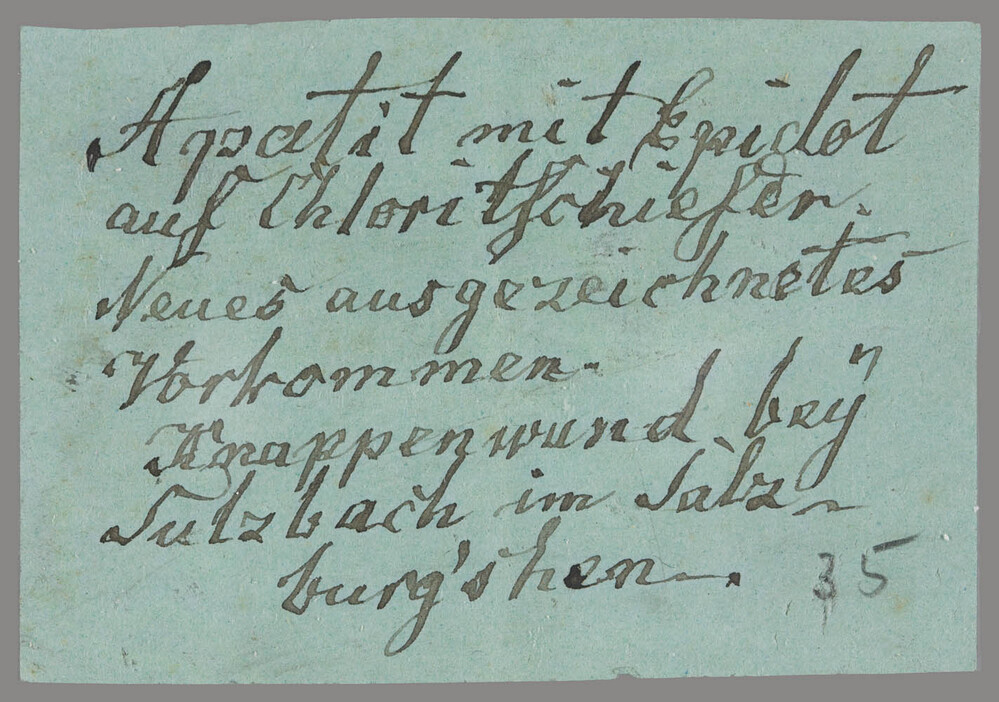 Apatit mit Epidot
auf Chloritschiefer.
Neues ausgezeichnetes
Vorkommen.
Knappenwund beÿ
Sulzbach im Salz-
burg'shen.
35